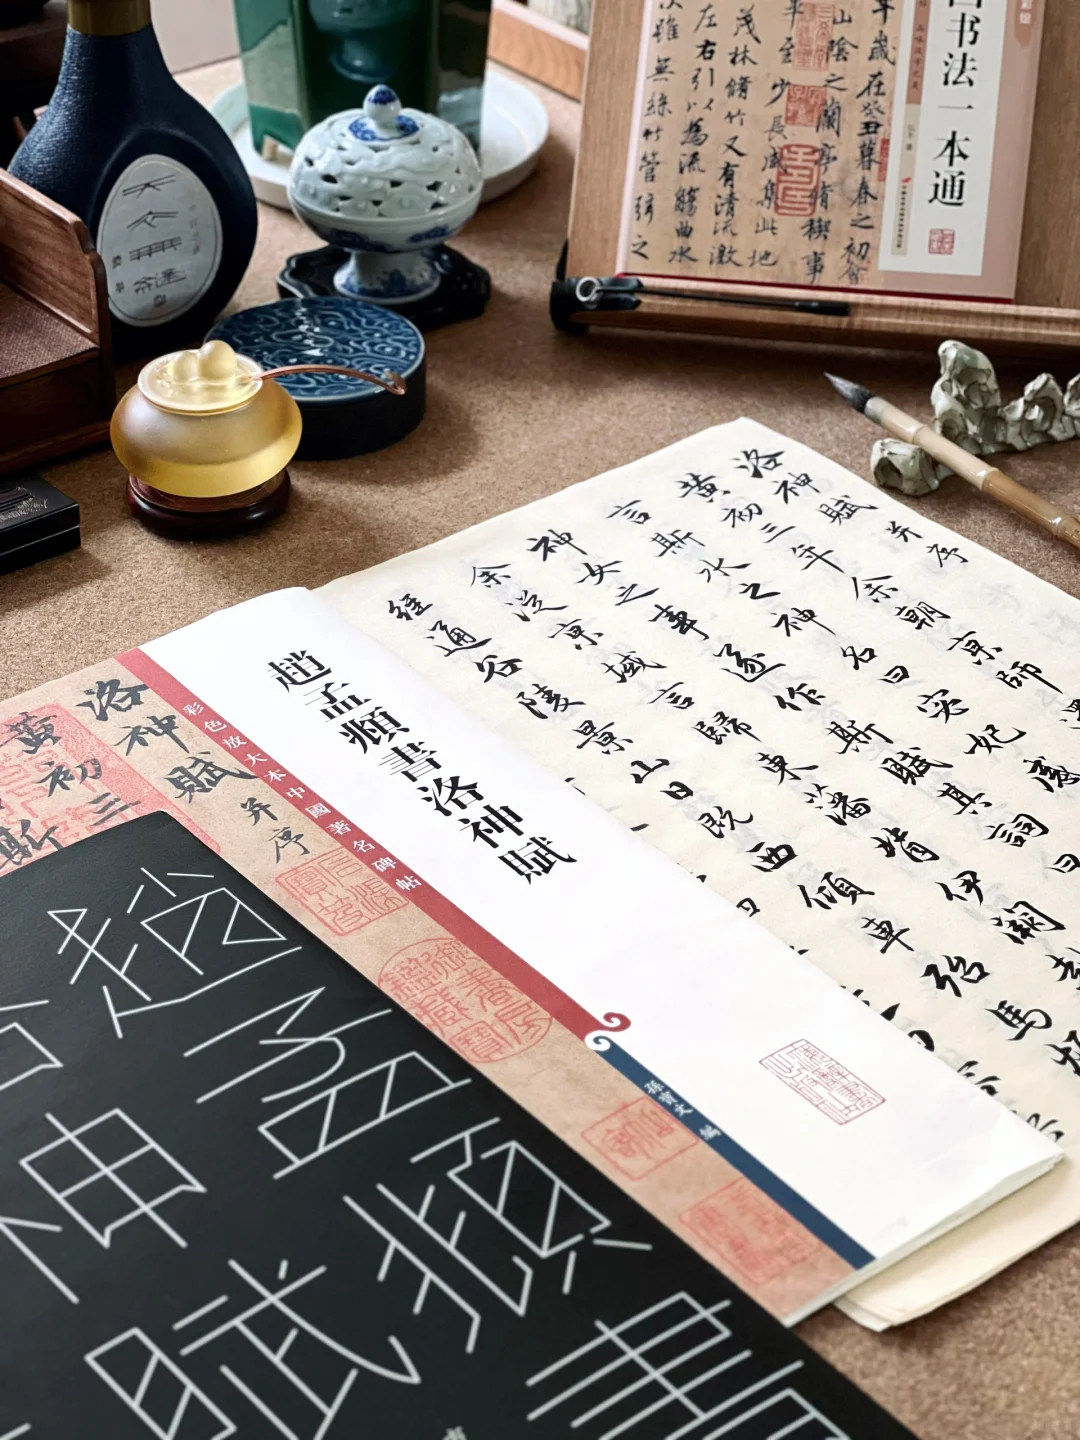 书法一本通
年歲在癸丑暮春之初會
山陰之蘭亭脩禊事
至少長咸集此地
茂林脩竹又有清流激
左右引以為流觴曲水
次雖無絲竹管弦之
洛神賦并序
黄初三年余朝京師
言斯水之神名曰宓妃感
神女之事遂作斯賦其詞曰
余從京域言歸東藩背伊闕
經通谷陵景山日既西傾車殆馬煩
趙孟頫書洛神賦
彩色放大本中國著名碑帖
孫寶文 編
洛神賦并序
黄初三
斯
趙孟頫書
神賦